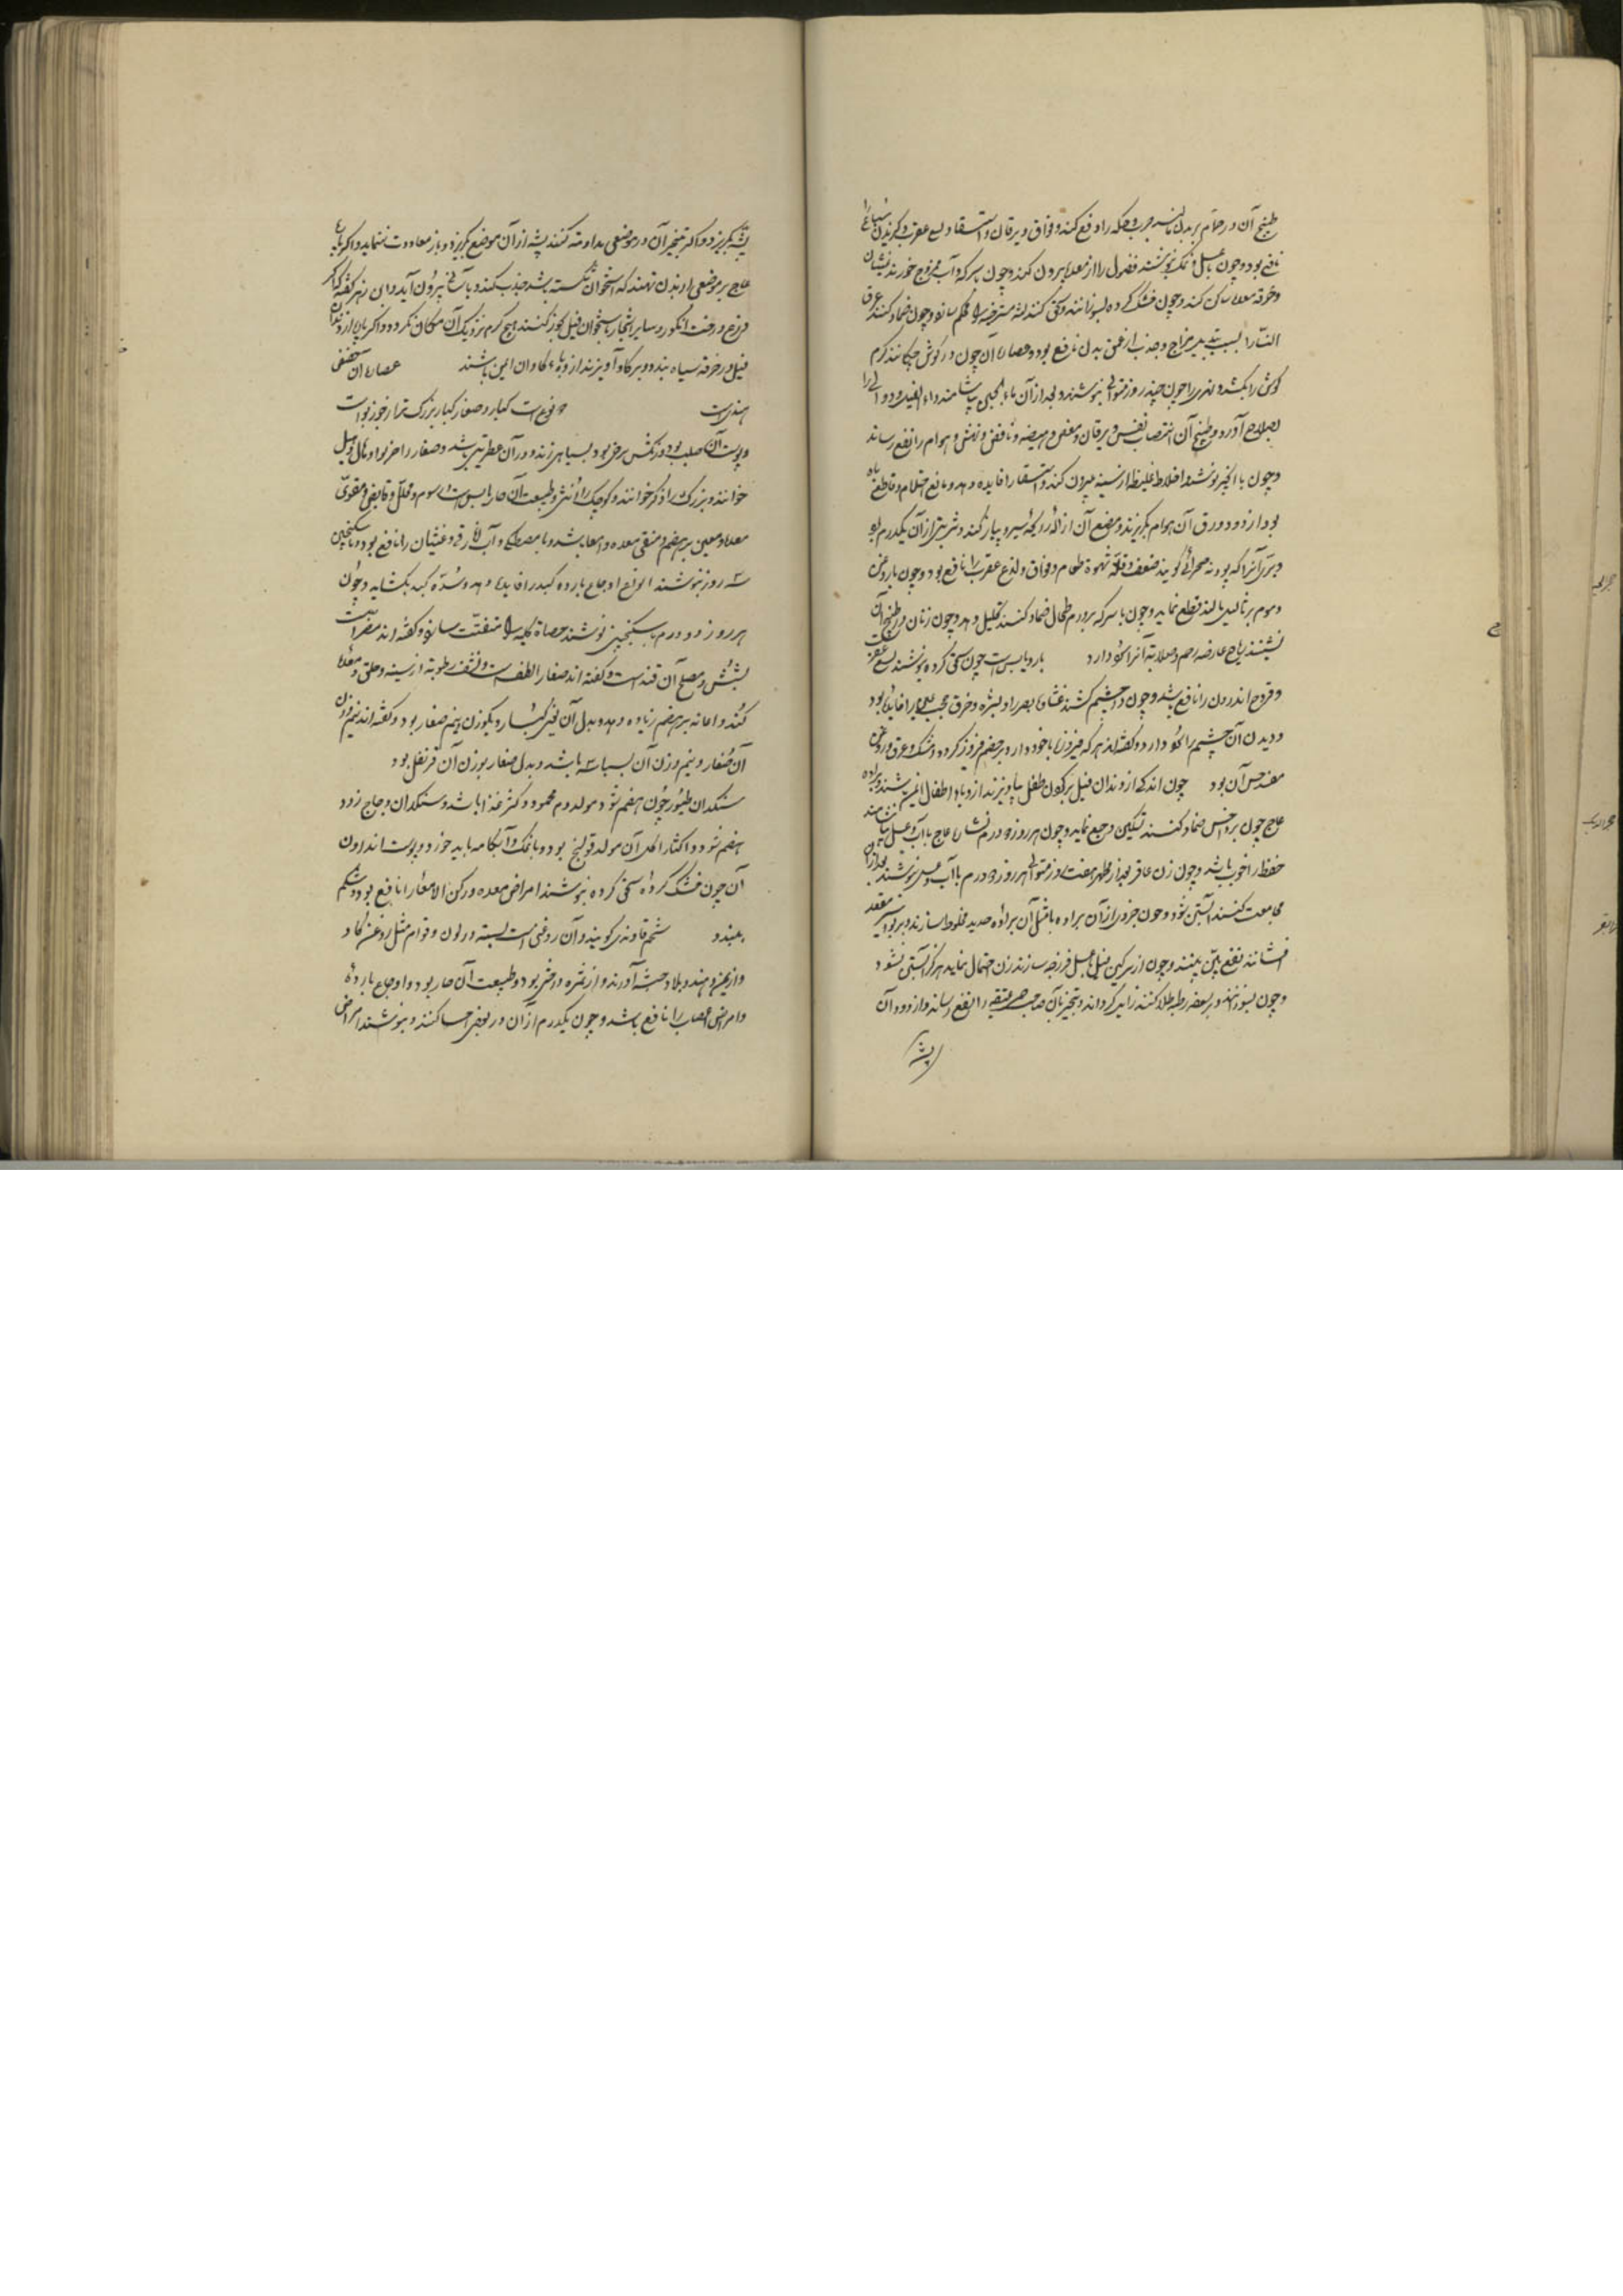 طبیخ آن در حمام بر بدن مالند جرب و حکه را دفع کند و فواق و یرقان و استسقا و لسع عقرب و گزیدن سباع را
نافع بود و چون با عسل و نمک بنوشند فضول را از معده بیرون کند و چون با سرکه و آب ممزوج خورند غثیان
و حرقه معده ساکن کند و چون خشک کرده بسوزانند و سحق کنند لثه مسترخیه را محکم سازد و چون ضماد کنند عرق
النسا را بسبب تبدیل مزاج و جذب از عمق بدن نافع بود و عصاره آن چون در گوش چکانند کرم
گوش را بکشد و نهری را چون چند روز متوالی بنوشند و بعد از آن ماء الجبن بیاشامند داء الفیل و دوالی را
بصلاح آورد و طبیخ آن انتصاب نفس و یرقان و مغص و هیضه و نافض و نهش هوام را نفع رساند
و چون با انجیر نوشند اخلاط غلیظ از سینه بیرون کند و استسقا را فایده دهد و مانع احتلام و قاطع باه
بود از دود ورق آن هوام بگریزند و مضغ آن ازاله رایحه سیر و پیاز کند و شربتی از آن یکدرم بود
و بری آنرا که پودنه صحرائی گویند ضعف و قلة شهوة طعام و فواق و لذع عقرب را نافع بود و چون با روغن
و موم بر ثالیل مالند قطع نماید و چون با سرکه بر ورم طحال ضماد کنند تحلیل دهد و چون زنان در طبیخ آن
نشینند ریاح عارضه رحم و صلابة آنرا سود دارد بارد یابس است چون سحق کرده بنوشند لسع عقرب
و قروح اندرون را نافع باشد و چون در چشم کشند غشاوه بصر را و بثره و خرق حجب را فایده بود
و دیدن آن چشم را نکو دارد و گفته اند هر که فیروزه با خود دارد بر خصم فیروز گردد و مشک و عرق و روغن
مفسد حس آن بود چون اندکی از دندان فیل بر گردن طفل بیاویزند از وباء اطفال ایمن باشند و براده
عاج چون بر داحس ضماد کنند تسکین وجع نماید و چون هر روز دو درم نشاره عاج با آب و عسل بیاشامند
حفظ را خوب باشد و چون زن عاقر بعد از طهر هفت روز متوالی هر روز دو درم با آب و عسل بنوشند بعد از آن
مجامعت کنند آبستن شود و چون جزوی از آن براده با مثل آن براده حدید مخلوط سازند و بر بواسیر مقعد
افشانند نفع بین بینند و چون از سرگین فیل با عسل فرزجه سازند زن احتمال نماید هرگز آبستن نشود
و چون بسوزانند و بر سعفه رطبه طلا کنند زایل گرداند و تبخیر بآن صاحب حمی عتیقه را نفع رساند و از دود آن
پشه
پشه بگریزد و اگر تبخیر آن در موضعی مداومت کنند پشه از آن موضع گریزد و باز معاودت ننماید و اگر پاره
عاج بر موضعی از بدن نهند که استخوان شکسته باشد جذب کند و بآسانی بیرون آید و ابن زهر گفته که اگر
فزع درخت انگور و سایر اشجار باستخوان فیل بخور کنند هیچ کرم نزدیک آن مکان نگردد و اگر پاره از دندان
فیل در خرقه سیاه بندد و بر گاو آویزند از وباء گاوان ایمن باشند عصاره آن حضض
هندی است دو نوع است کبار و صغار کبار بزرگ تر از جوز بوا است
و پوست آن صلب بود و رنگش سرخی بود بسیاهی زند و در آن عطریتی باشد و صغار را خیربوا و هال و هیل
خوانند و بزرگ را ذکر خوانند و کوچک را انثی و طبیعت آن حار یابس است در سوم و محلل و قابض و مقوی
معده و معین بر هضم و منقی معده و امعا باشد و با مصطکی و آب انارین قی و غثیان را نافع بود و با سکنجبین
سه روز بنوشند انواع اوجاع بارده کبد را فایده دهد و سده کبد بگشاید و چون
هر روز دو درم با سکنجبین نوشند حصاة کلیه را متفتت سازد و گفته اند مضر است
بشش و مصلح آن قند است و گفته اند صغار الطف است و نشف رطوبة از سینه و حلق و معده
کند و اعانه بر هضم زیاده دهد و بدل آن یعنی کبار و بکوزن و نیم صغار بود و گفته اند نیم وزن
آن صغار و نیم وزن آن بسباسه باشد و بدل صغار بوزن آن قرنفل بود
سنگدان طیور چون هضم شود مولد دم محمود و کثیر غذا باشد و سنگدان دجاج زود
هضم شود و اکثار اکل آن مولد قولنج بود و با نمک و آبکامه باید خورد و پوست اندرون
آن چون خشک کرده سحق کرده بنوشند امراض معده و رکن الامعا را نافع بود و شکم
ببندد شحم قاوندی گویند و آن روغنی است بسته در لون و قوام مثل روغن گاو
و از یمن و هند و بلاد حبشه آورند و از ثمره درختی بود و طبیعت آن حار بود و اوجاع بارده
و امراض اعصاب را نافع باشد و چون یکدرم از آن در بعضی احسا کنند و بنوشند امراض